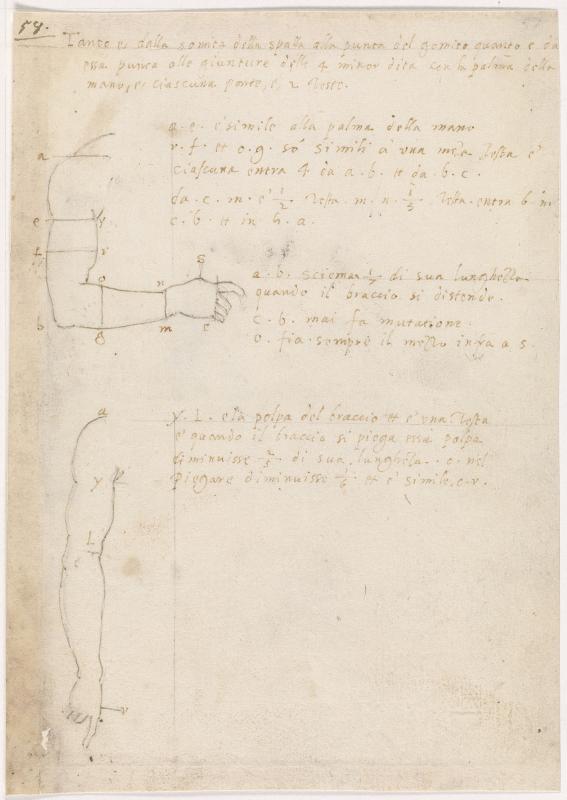 58.
Tanto e, dalla somità della spalla alla punta del gomito quanto e da
essa punta alle giunture delle 4 minor dita con la palma della
mano, e, ciascuna parte, e, 2 Teste.
a. e. è simile alla palma della mano
r. f. et o. g. sō simili a una meza Testa è
ciascuna entra 4 da a. b. et da. b. c.
da. c. m. è 1/2 Testa m. n. 1/3 Testa entra b. n.
c. b. et in h. a.
a. b. sciema 1/7 di sua lunghezza
quando il braccio si distende.
c. b. mai fa mutatione
o. fia sempre il mezzo infra a s.
y. L. e la polpa del braccio et è una Testa
è quando il braccio si piega essa polpa
diminuisse 2/5 di sua lungheza. o nel
piegare diminuisse 1/6 et è simile. o. r.
a
e y
f r
o n s
b g m c
a
y
L
v